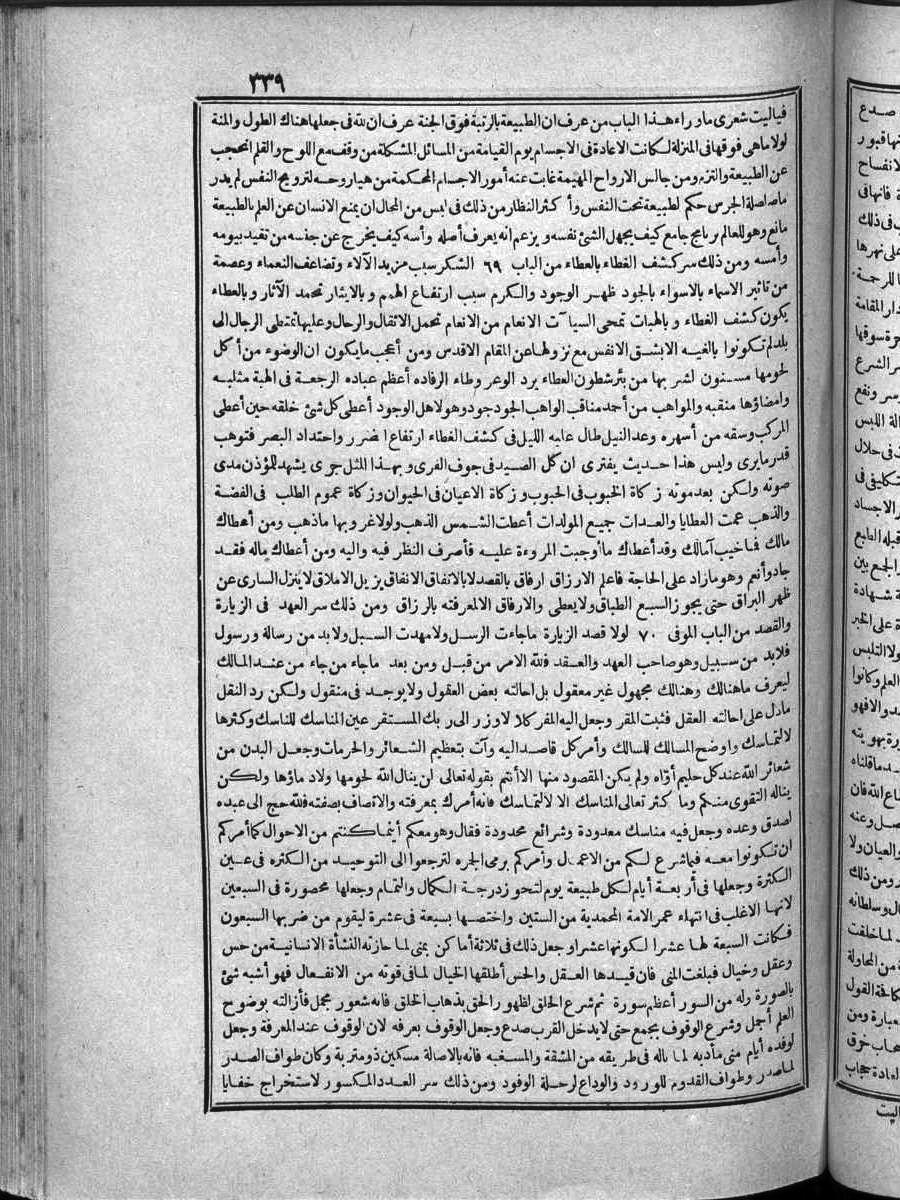 ٣٣٩
فياليت شعرى ماوراء هذا الباب من عرف ان الطبيعة بالرتبة فوق الجنة عرف ان لله فى جعلها هناك الطول والمنة
لولا ماهى فوقها فى المنزلة لكانت الاعادة فى الاجسام يوم القيامة من المسائل المشكلة من وقف مع اللوح والقلم انحجب
عن الطبيعة والتزم ومن جالس الارواح المهيمة غابت عنه أمور الاجسام المحكمة من هيا روحه لترويح النفس لم يدر
ماصلصلة الجرس حكم لطبيعة تحت النفس وأكثر النظار من ذلك فى لبس من المحال ان يمنع الانسان عن العلم بالطبيعة
مانع وهو للعالم برنامج جامع كيف يجهل الشئ نفسه ويزعم انه يعرف أصله وأسه كيف يخرج عن جنسه من تقيد بيومه
وأمسه ومن ذلك سر كشف الغطاء بالعطاء من الباب ٦٩ الشكر سبب مزيد الآلاء وتضاعف النعماء وعصمة
من تاثير الاسماء بالاسواء بالجود ظهر الوجود والكرم سبب ارتفاع الهمم وبالايثار تحمد الآثار وبالعطاء
يكون كشف الغطاء وبالهبات تمحى السيآت الانعام من الانعام تحمل الاثقال والرحال وعليها تمتطى الرجال الى
بلد لم تكونوا بالغيه الابشق الانفس مع نزولها عن المقام الاقدس ومن أعجب مايكون ان الوضوء من أكل
لحومها مسنون لشربها من بئر شطون العطاء يرد الوعر وطاء الرفاده أعظم عباده الرجعة فى الهبة مثلبه
وامضاؤها منقبه والمواهب من أحمد مناقب الواهب الجود جود وهو لاهل الوجود أعطى كل شئ خلقه حين أعطى
المركب وسقه من أسهره وعد النيل طال عليه الليل فى كشف الغطاء ارتفاع الضرر واحتداد البصر فتوهب
قدر مايرى وليس هذا حديث يفترى ان كل الصيد فى جوف الفرى وبهذا المثل جرى يشهد للمؤذن مدى
صوته ولكن بعد موته زكاة الحبوب فى الحبوب وزكاة الاعيان فى الحيوان وزكاة عموم الطلب فى الفضة
والذهب عمت العطايا والعدات جميع المولدات أعطت الشمس الذهب ولولا غروبها ماذهب ومن أعطاك
مالك فما خيب آمالك وقد أعطاك ما أوجبت المروءة عليه فأصرف النظر فيه واليه ومن أعطاك ماله فقد
جاد وأنعم وهو مازاد على الحاجة فاعلم الارزاق ارفاق بالقصد لا بالاتفاق الانفاق يزيل الاملاق لا ينزل السارى عن
ظهر البراق حتى يجوز السبع الطباق ولا يعطى والارفاق الالمعرفته بالرزاق ومن ذلك سر العهد فى الزيارة
والقصد من الباب الموفى ٧٠ لولا قصد الزيارة ماجاءت الرسل ولا مهدت السبل ولا بد من رسالة ورسول
فلا بد من سبيل وهو صاحب العهد والعقد فلله الامر من قبل ومن بعد ماجاء من جاء من عند المالك
ليعرف ماهنالك وهنالك مجهول غير معقول بل احالته بعض العقول ولا يوجد فى منقول ولكن رد النقل
مادل على احالته العقل فثبت المقر وجعل اليه المفر كلا لاوزر الى ربك المستقر عين المناسك للناسك وكثرها
لالتماسك واوضح المسالك للسالك وأمر كل قاصد اليه وآت بتعظيم الشعائر والحرمات وجعل البدن من
شعائر الله عند كل حليم أوّاه ولم يكن المقصود منها الا أنتم بقوله تعالى لن ينال الله لحومها ولا دماؤها ولكن
يناله التقوى منكم وما كثر تعالى المناسك الا لالتماسك فانه أمرك بمعرفته والاتصاف بصفته فلله حج الى عبيده
لصدق وعده وجعل فيه مناسك معدودة وشرائع محدودة فقال وهو معكم أينما كنتم من الاحوال كما أمركم
ان تكونوا معه فيما شرع لكم من الاعمال وأمركم برمى الجره لترجعوا الى التوحيد من الكثره فى عين
الكثرة وجعلها فى أربعة أيام لكل طبيعة يوم لتحوز درجة الكمال والتمام وجعلها محصورة فى السبعين
لانها الاغلب فى انتهاء عمر الامة المحمدية من الستين واختصها بسبعة فى عشرة ليقوم من ضربها السبعون
فكانت السبعة لها عشرا لكونها عشرا وجعل ذلك فى ثلاثة أماكن بمنى لما حازته النشأة الانسانية من حس
وعقل وخيال فبلغت المنى فان قيدها العقل والحس أطلقها الخيال لمافى قوته من الانفعال فهو أشبه شئ
بالصورة وله من السور أعظم سورة ثم شرع الحلق لظهور الحق بذهاب الخلق فانه شعور مجمل فأزالته بوضوح
العلم أجمل وشرع الوقوف بجمع حتى لا يدخل القرب صدع وجعل الوقوف بعرفه لان الوقوف عند المعرفة وجعل
لوفده أيام منى مأدبه لما ناله فى طريقه من المشقة والمسغبه فانه بالاصالة مسكين ذومتربة وكان طواف الصدر
لما صدر وطواف القدوم للورود والوداع لرحلة الوفود ومن ذلك سر العدد المكسور لاستخراج خفايا